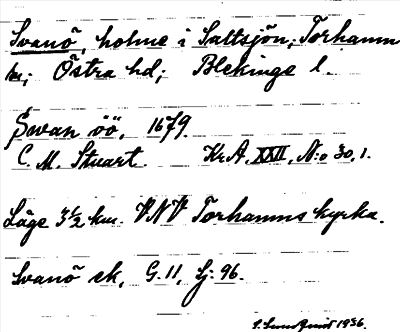 Svanö, holme i Saltsjön; Torhamn
sn; Östra hd; Blekinge l.
Swan öö, 1679.
C. M. Stuart. Kr.A. XXII, N:o 30, 1.
Läge 3½ km. VNV Torhamns kyrka.
Svanö ek, G. 11, Sj: 96.
S. Lundqvist 1936.